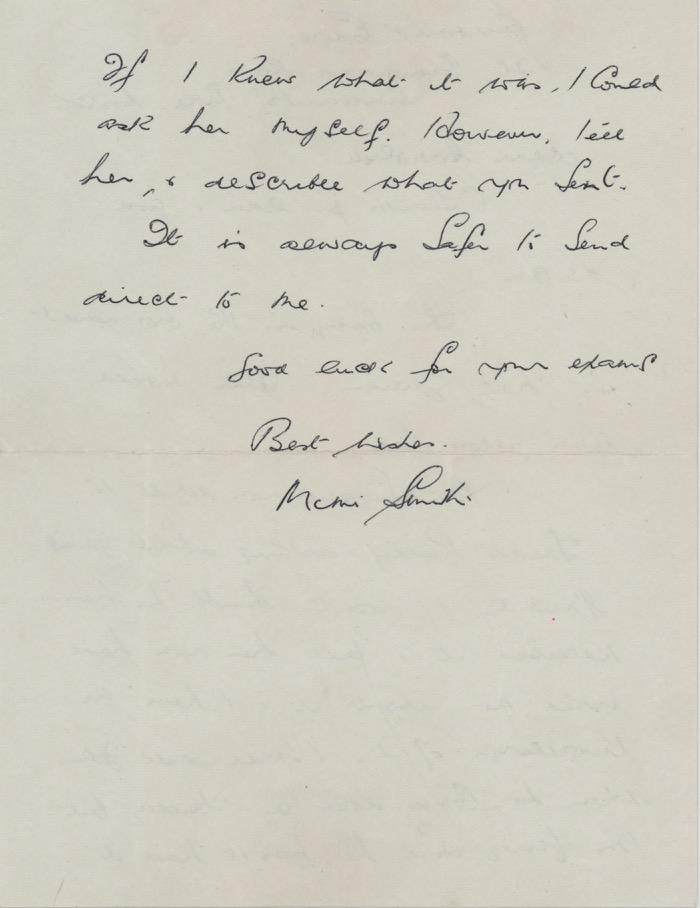 If I knew what it was, I could
ask her myself. However, tell
her, & describe what you sent.
It is always safer to send
direct to me.
Good luck for your exams
Best wishes.
Smith.